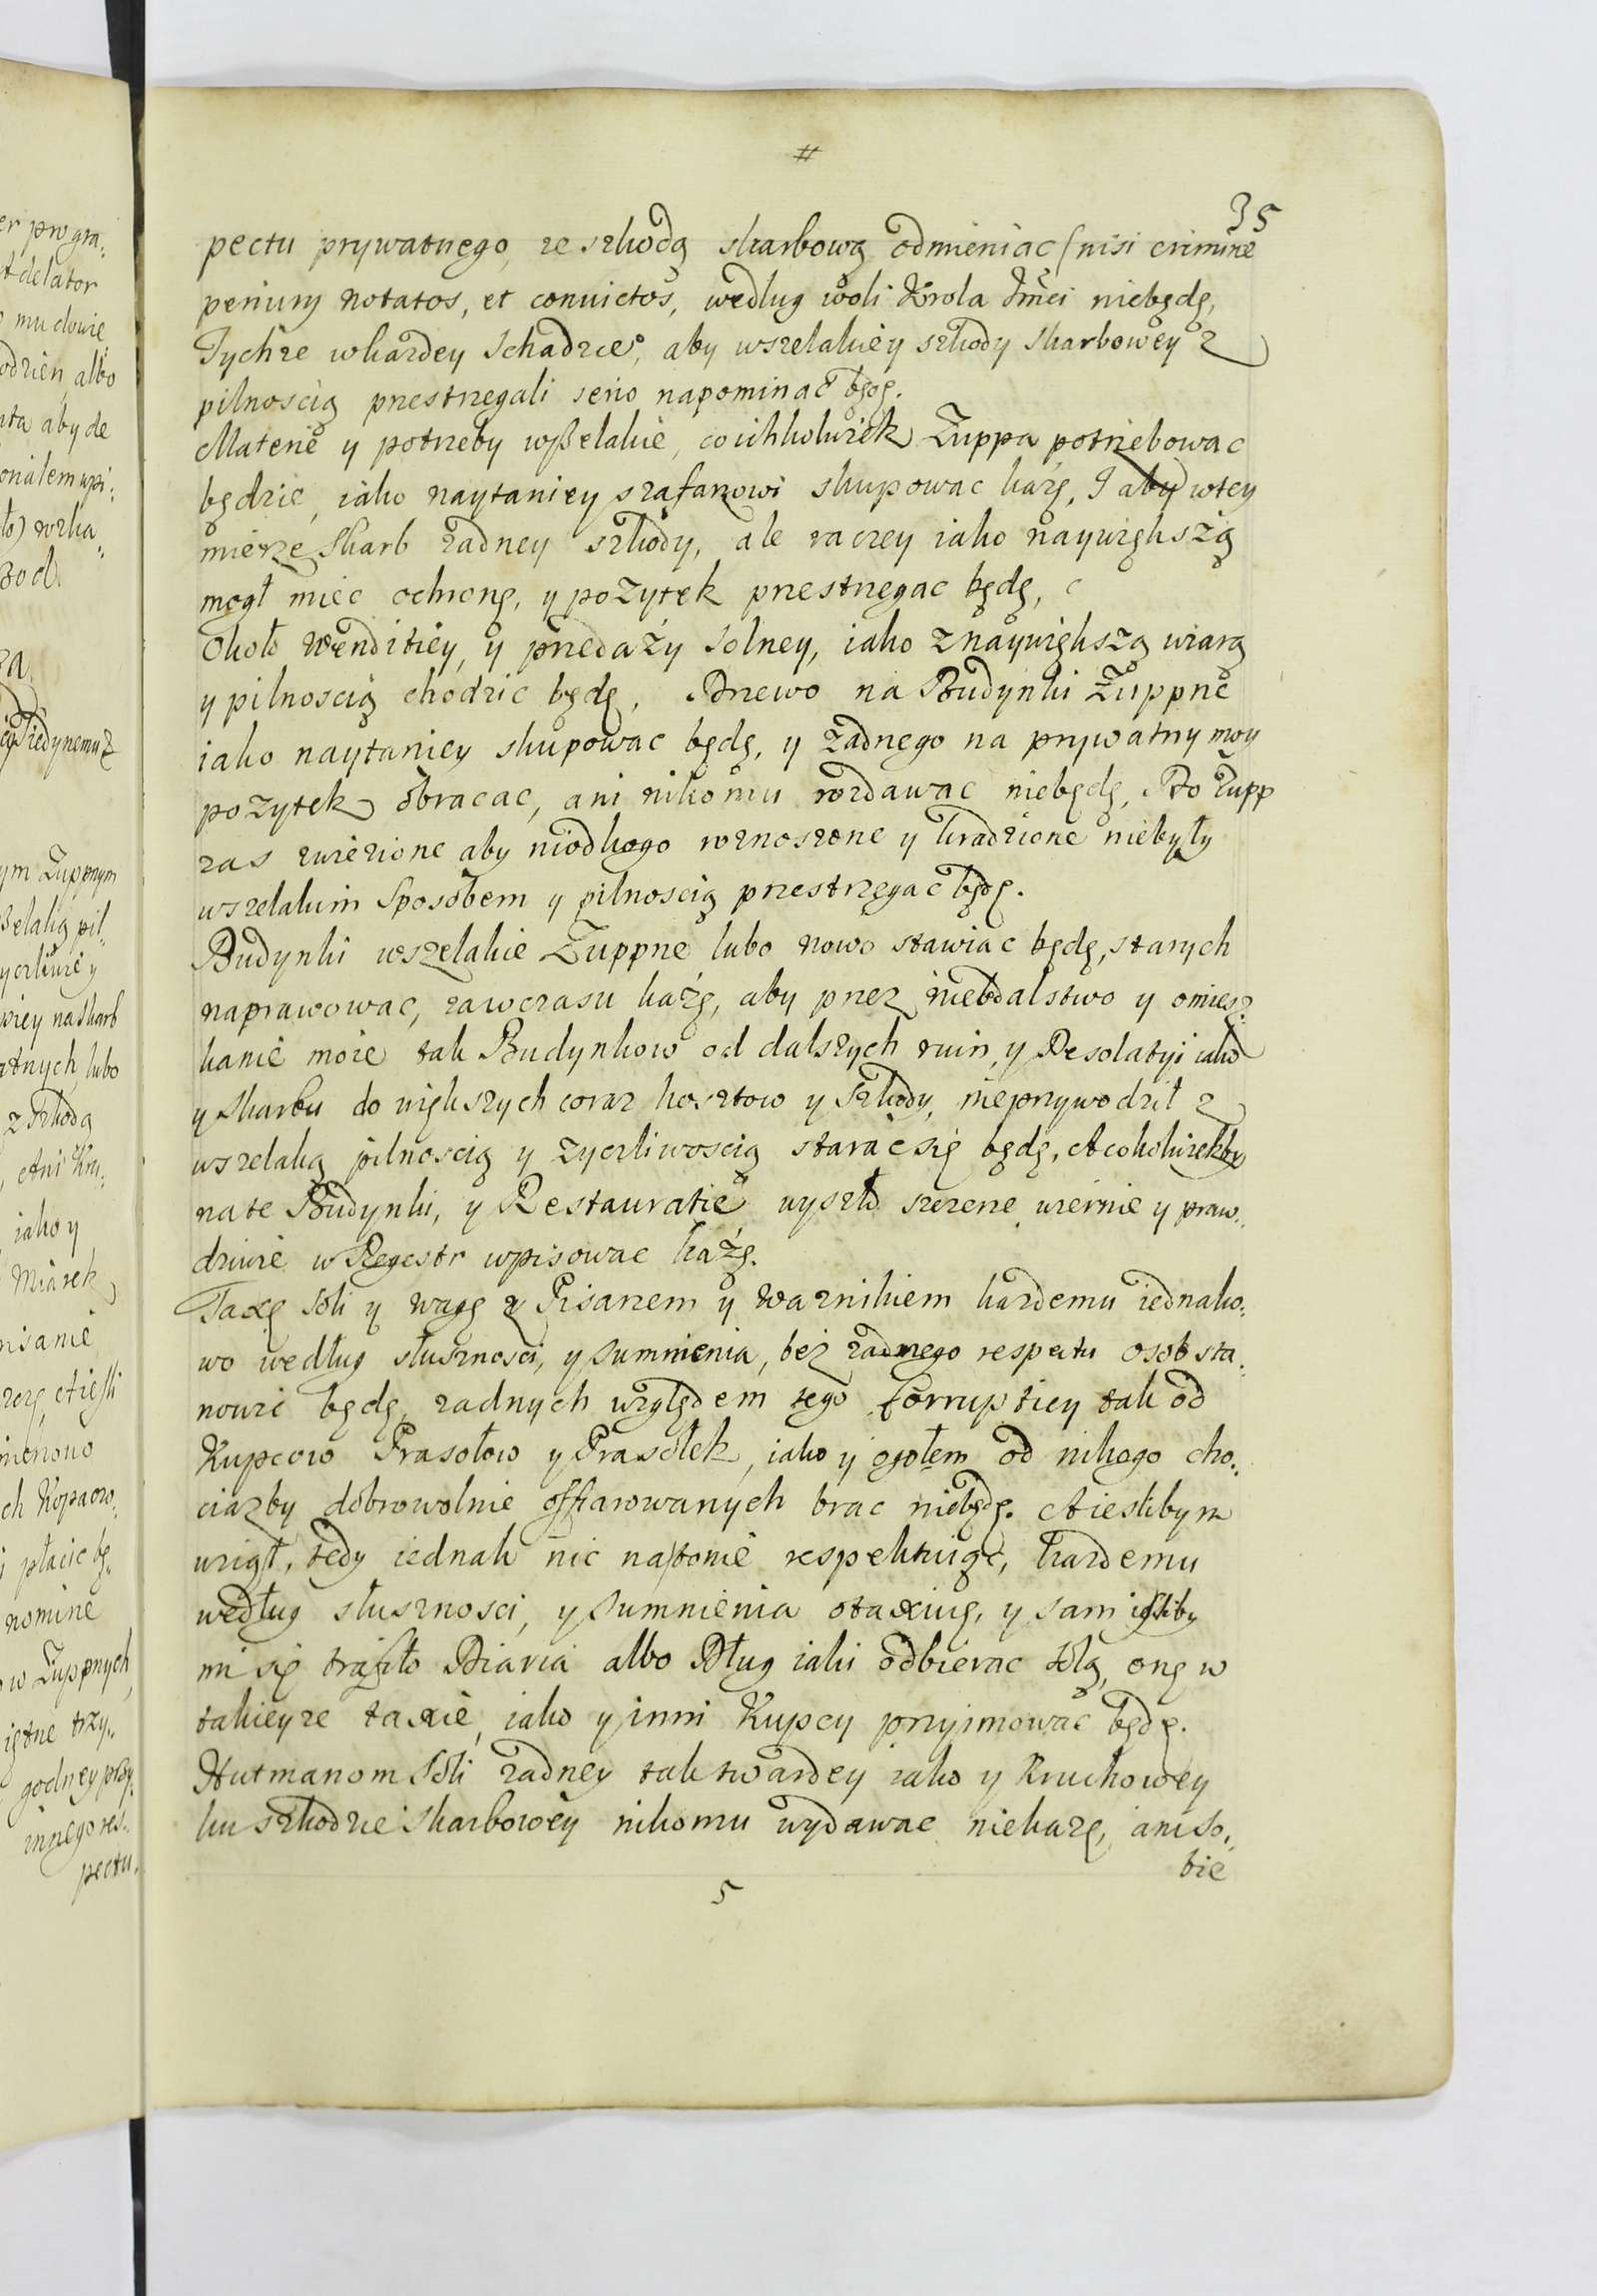 #
35
pectu prywatnego, ze szkodą skarbową odmieniac (nisi crimine
periurij notatos, et convictos, według woli Krola Jmći niebędę,
Tychże wkażdey Schadzce, aby wszelakiey szkody Skarbowey z
pilnoscią przestrzegali serio napominać będę.
Materie y potrzeby wszelakie, co ichkolwiek Zuppa potrzebowac
będzie, iako naytaniey szafarzowi skupowac każę, I aby wtey
mierze Skarb żadney szkody, ale raczey iako naywiększą
mogł miec ochronę, y pożytek przestrzegac będę,
Około Wenditiey, y przedaży Solney, iako znaywiększą wiarą
y pilnoscią chodzic będę, Drzewo na Budynki Żuppne
iako naytaniey skupowac będę, y żadnego na prywatny moy
pożytek obracac, ani nikomu rozdawac niebędę, Do Zupp
zas zwiezione aby niodkogo roznoszone y kradzione niebyły
wszelakim Sposobem y pilnoscią przestrzegac będę.
Budynki wszelakie Zuppne lubo nowo stawiac będę, starych
naprawowac, zawczasu każę, aby przez niedbalstwo y omiesz=
kanie moie tak Budynkow od dalszych ruin, y Desolatyi iako
y Skarbu do większych coraz kosztow y szkody nieprzywodził z
wszelaką pilnoscią y życzliwoscią starac się będę, A cokolwiekby
na te Budynki, y Restauratie wyszło szczerze wiernie y praw=
dziwie w Regestr wpisowac każę.
Taxę Soli y wagę z Pisarzem y Warnikiem każdemu iednako=
wo według słusznosci, y sumnienia, bez żadnego respectu osob sta=
nowic będę, żadnych względem tego Corruptiey tak od
Kupcow Prasołow y Prasołek, iako y ogołem od nikogo cho=
ciażby dobrowolnie offiarowanych brac niebędę. A ieslibym
wziął, tedy iednak nic nato nie respektuiąc, każdemu
według słusznosci, y Sumnienia otaxuię, y sam iesliby
mi się trafiło Diaria albo Dług iaki odbierac Solą, onę w
takieyże taxie, iako y inni Kupcy przyimowac będę.
Hutmanom Soli żadney tak twardey iako y Kruchowey
ku szkodzie Skarbowey nikomu wydawac niekażę, ani so=
bie
5